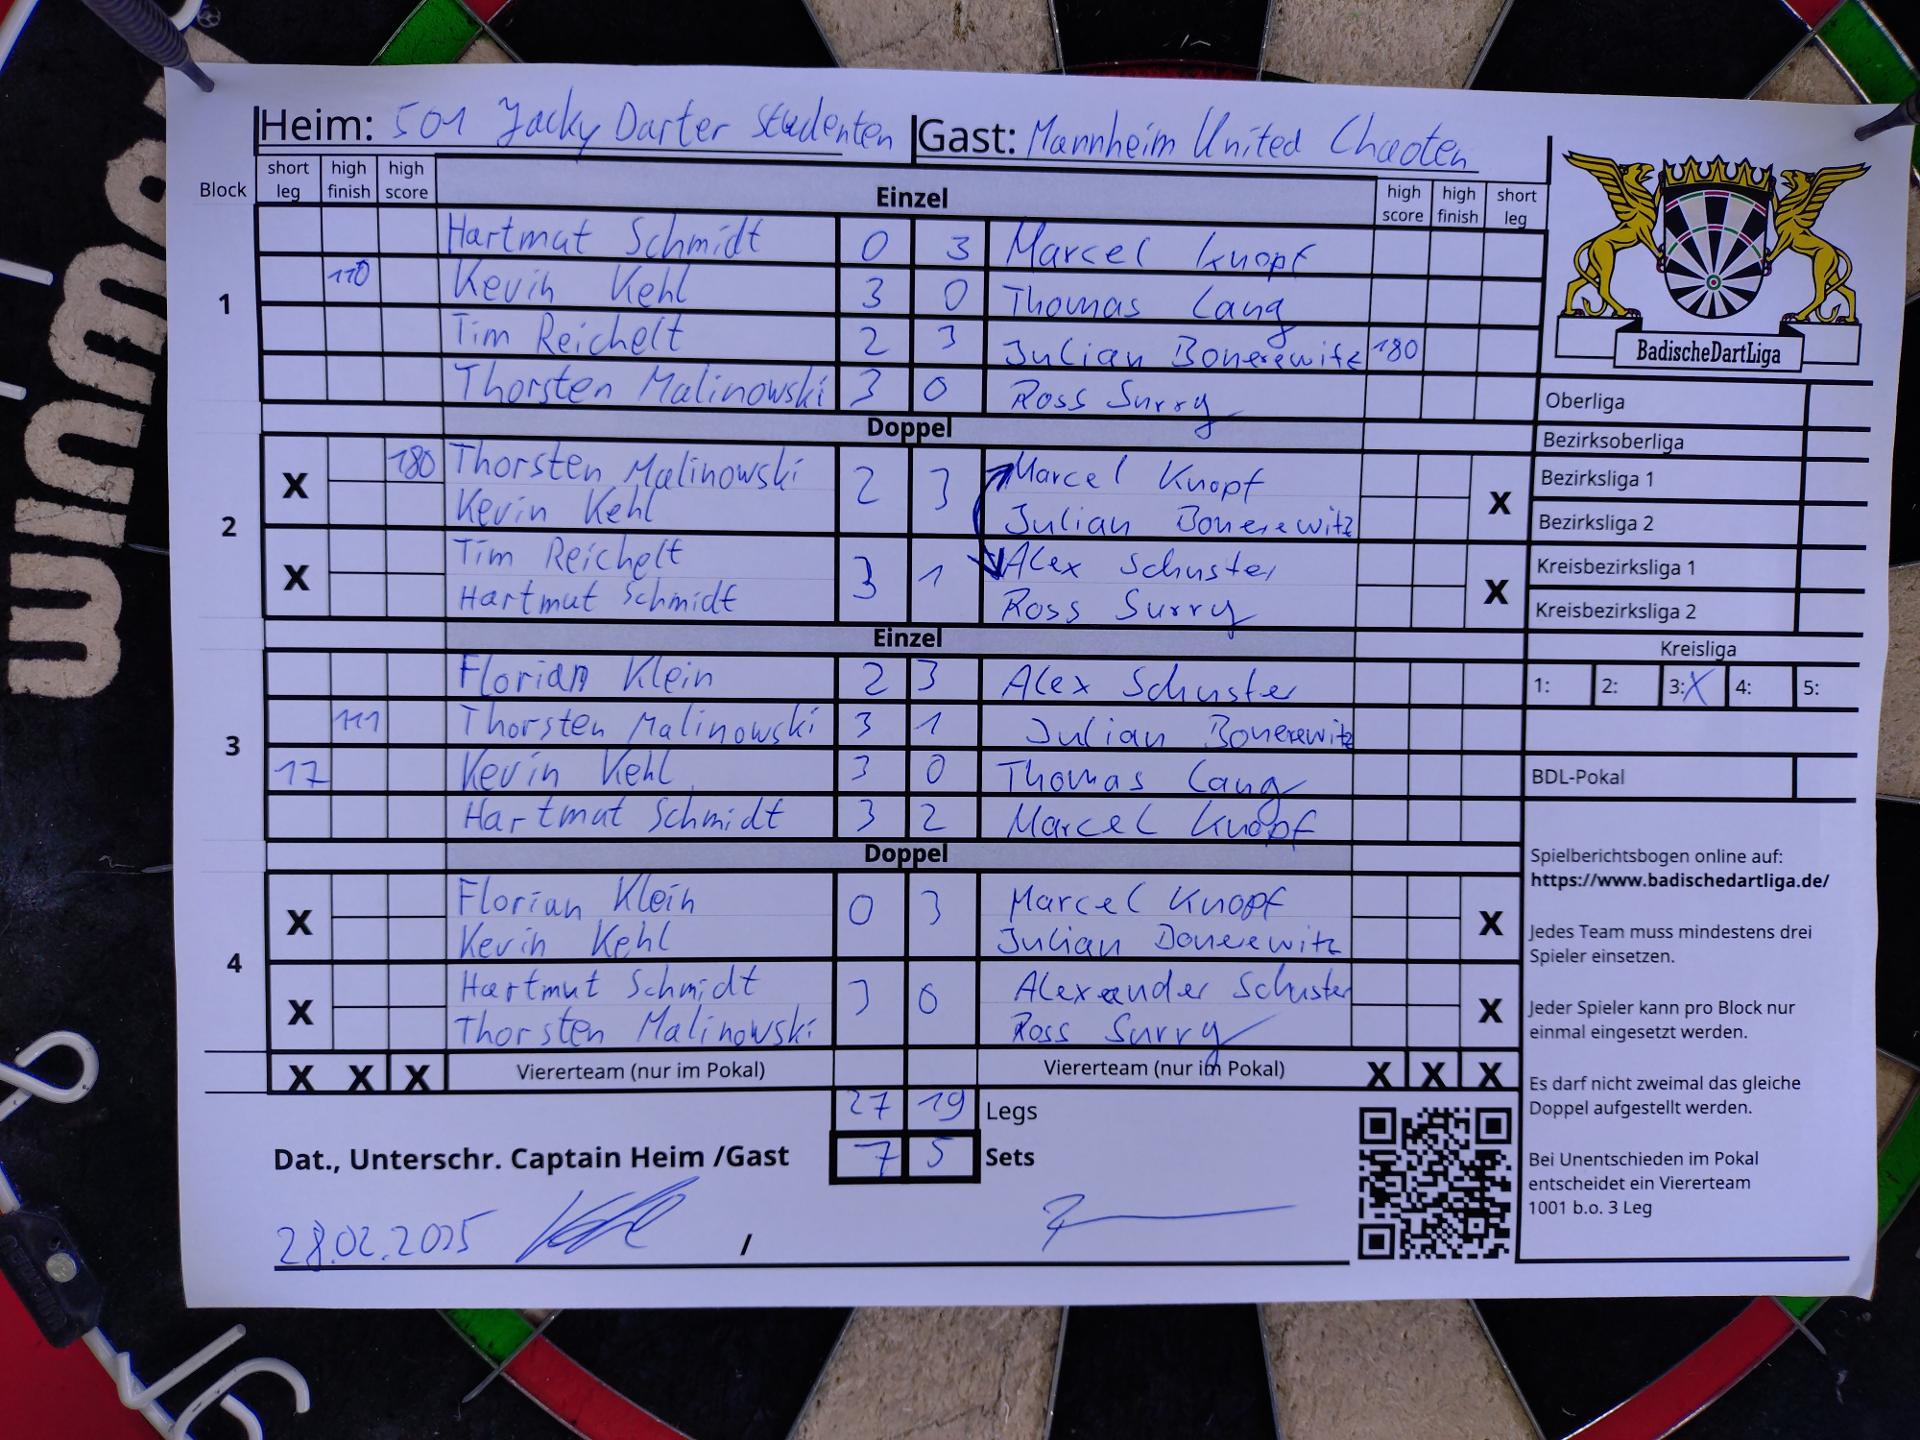 Heim: 501 Jacky Darter Studenten Gast: Mannheim United Chaoten
Block short leg high finish high score Einzel high score high finish short leg
1
Hartmut Schmidt 0 3 Marcel Knopf
110 Kevin Kehl 3 0 Thomas Lang
Tim Reichelt 2 3 Julian Bonerewitz 180
Thorsten Malinowski 3 0 Ross Surry
Doppel
2
X 180 Thorsten Malinowski 2 3 Marcel Knopf X
Kevin Kehl Julian Bonerewitz
X Tim Reichelt 3 1 Alex Schuster X
Hartmut Schmidt Ross Surry
Einzel
3
Florian Klein 2 3 Alex Schuster
111 Thorsten Malinowski 3 1 Julian Bonerewitz
17 Kevin Kehl 3 0 Thomas Lang
Hartmut Schmidt 3 2 Marcel Knopf
Doppel
4
X Florian Klein 0 3 Marcel Knopf X
Kevin Kehl Julian Bonerewitz
X Hartmut Schmidt 3 0 Alexander Schuster X
Thorsten Malinowski Ross Surry
X X X Viererteam (nur im Pokal) Viererteam (nur im Pokal) X X X
27 19 Legs
Dat., Unterschr. Captain Heim /Gast 7 5 Sets
28.02.2025 /
BadischeDartLiga
Oberliga
Bezirksoberliga
Bezirksliga 1
Bezirksliga 2
Kreisbezirksliga 1
Kreisbezirksliga 2
Kreisliga
1: 2: 3: X 4: 5:
BDL-Pokal
Spielberichtsbogen online auf:
https://www.badischedartliga.de/
Jedes Team muss mindestens drei
Spieler einsetzen.
Jeder Spieler kann pro Block nur
einmal eingesetzt werden.
Es darf nicht zweimal das gleiche
Doppel aufgestellt werden.
Bei Unentschieden im Pokal
entscheidet ein Viererteam
1001 b.o. 3 Leg